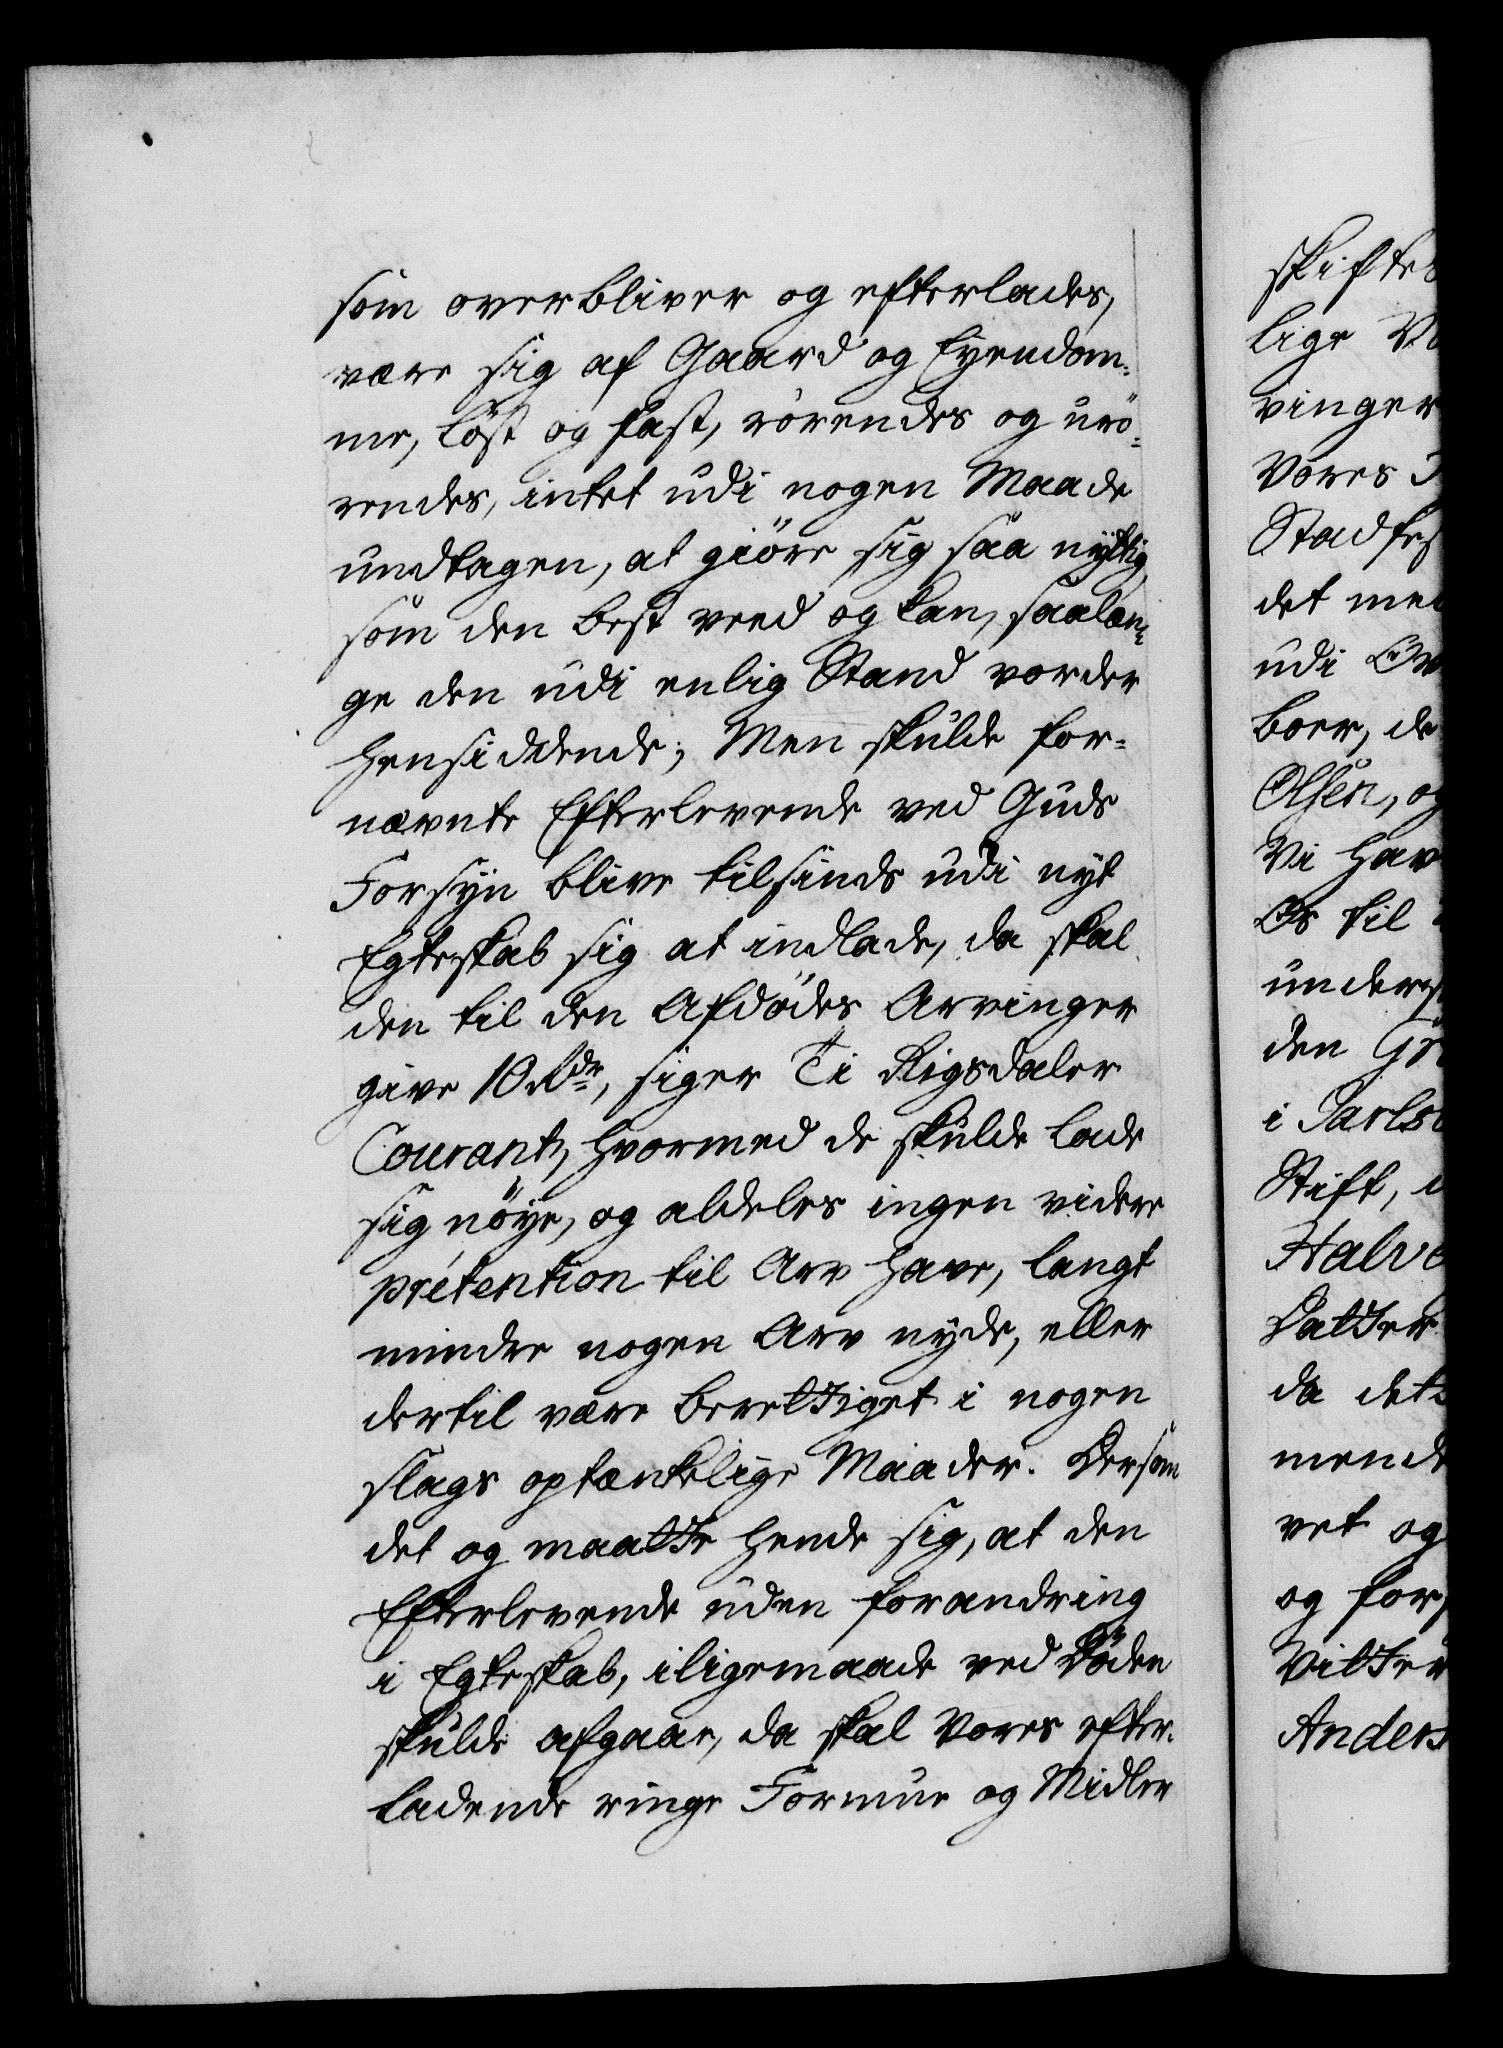 som overbliver og efterlades,
være sig af Gaard og Eyendom-
me, löst og fast, rörendes og urö-
rendes, intet udi nogen Maade
undtagen, at giöre sig saa nyttig,
som den best veed og kan, saalæn-
ge den udi enlig Stand vorder
hensiddende; Men skulde for-
nævnte Efterlevende ved Guds
Forsyn blive tilsinds udi nyt
Egteskab sig at indlade, da skal
den til den Afdödes Arvinger
give 10 Rdr, siger Ti Rigsdaler
Courant, hvormed de skulde lade
sig nöye, og aldeles ingen videre
prétention til Arv have, langt
mindre nogen Arv nyde, eller
dertil være berettiget i nogen
slags optænkelige Maader. Dersom
det og maatte hende sig, at den
Efterlevende uden forandring
i Egteskab, iligemaade ved Döden
skulde afgaae, da skal Vores efter-
ladende ringe Formue og Midler
skiftes
lige
vinger
Vores
Stadfes
det med
udi
boer, de
Olsen, og
Vi hav
Os til
unders
den Gr
i Jarls
Stift,
Halvo
Datter
da det
mende
vet og
og for
Vitter
Anders